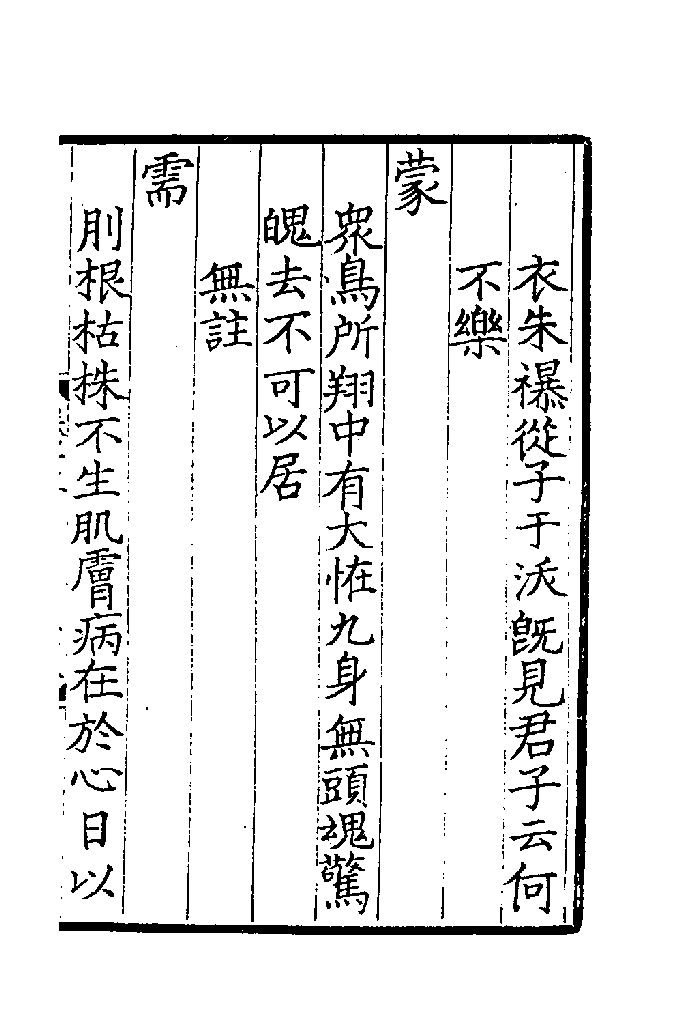 衣朱襮從子于沃旣見君子云何
不樂
蒙
衆鳥所翔中有大恠九身無頭魂驚
魄去不可以居
無註
需
刖根枯株不生肌膚病在於心日以